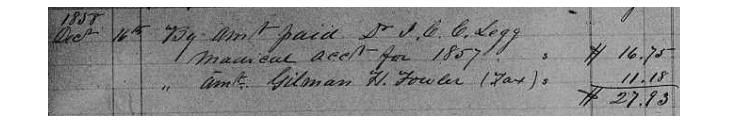 1858
Dect 16th By Amt paid Dr I. C. C. Legg
Medical acct for 1857 " $ 16.75
" Amt. Gilman H. Fowler (Tax) " 11.18
$ 27.93